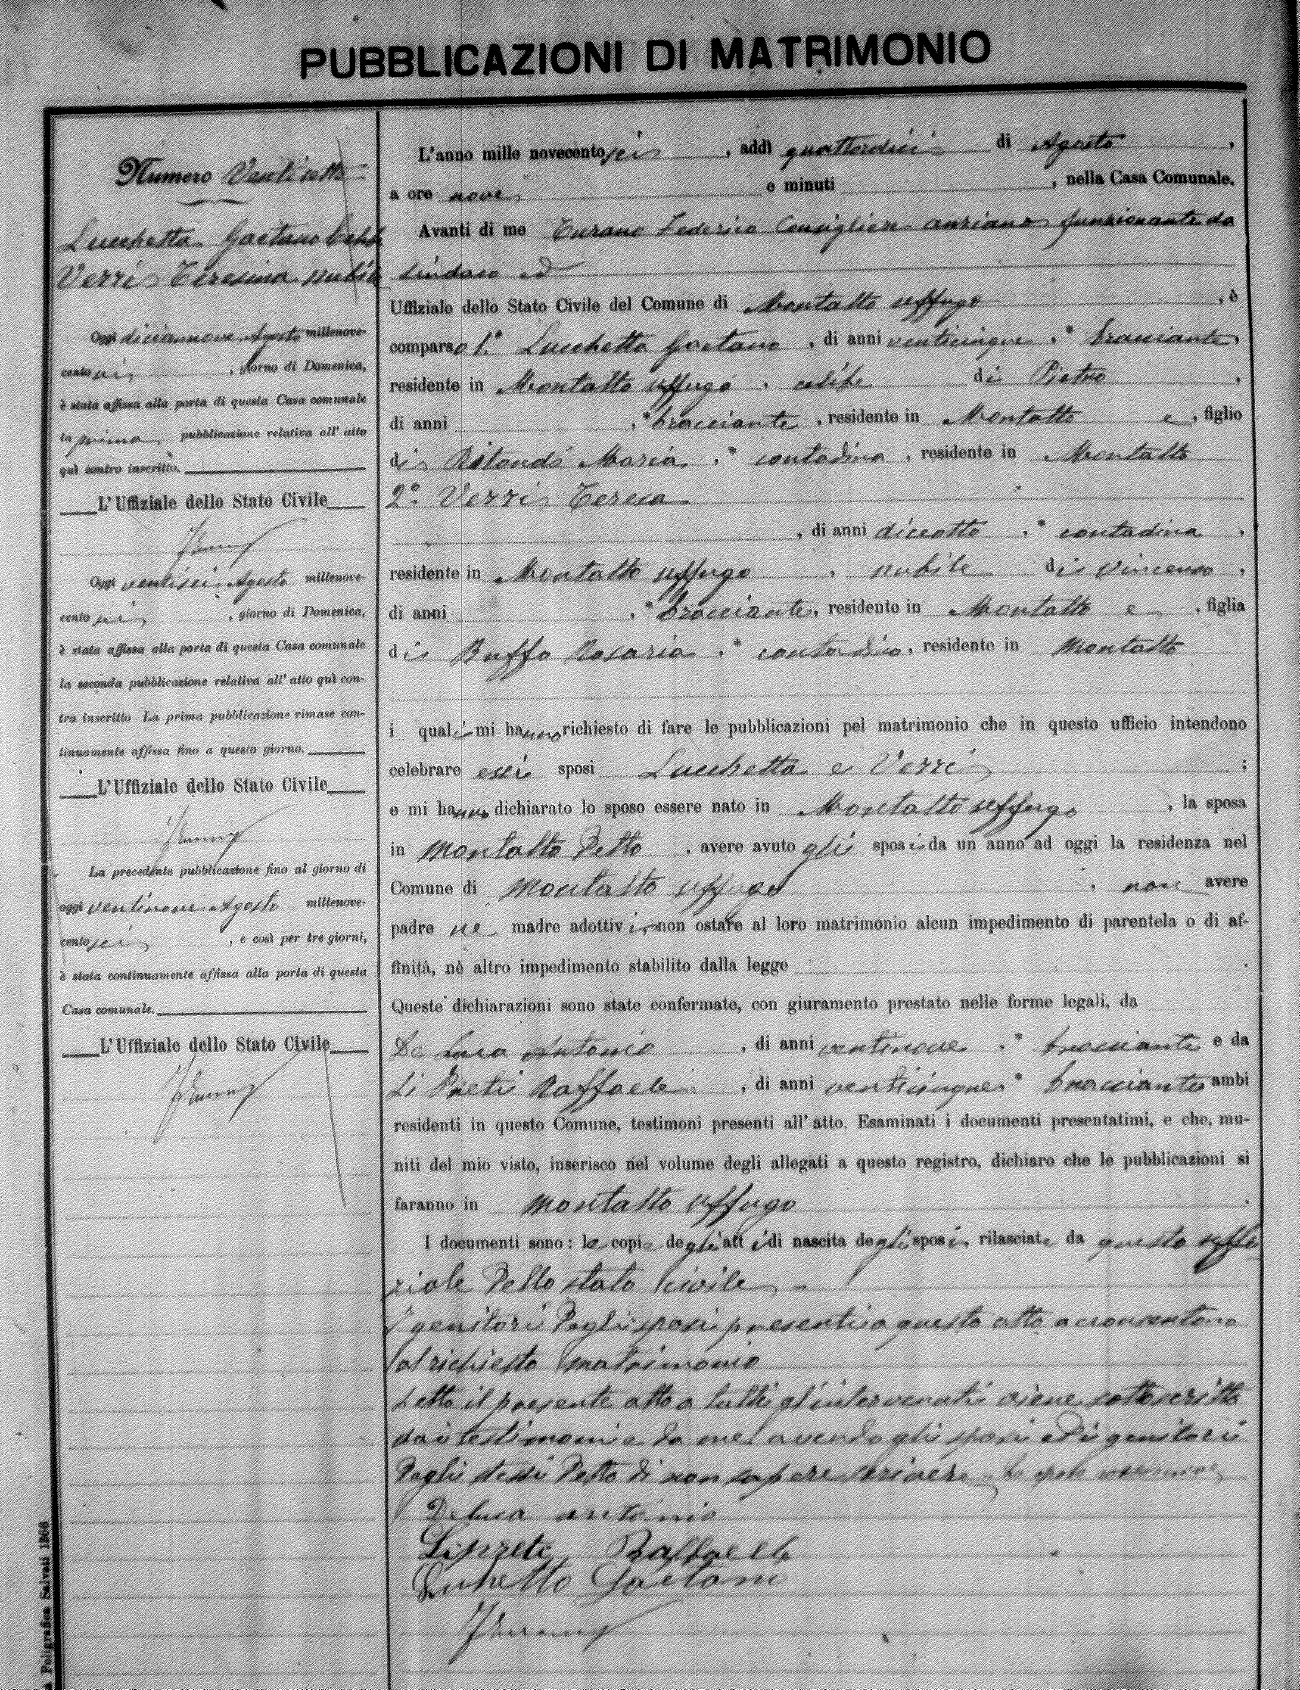 PUBBLICAZIONI DI MATRIMONIO
Numero Ventisette
Lucchetta Gaetano Celibe
Verri Teresina nubile
Oggi diciannove Agosto millenove-
cento sei, giorno di Domenica,
è stata affissa alla porta di questa Casa comunale
la prima pubblicazione relativa all' atto
quì contro inscritto.
L'Uffiziale dello Stato Civile
Oggi ventisei Agosto millenove-
cento sei, giorno di Domenica,
è stata affissa alla porta di questa Casa comunale
la seconda pubblicazione relativa all' atto quì con-
tro inscritto La prima pubblicazione rimase con-
tinuamente affissa fino a questo giorno.
L'Uffiziale dello Stato Civile
La precedente pubblicazione fino al giorno di
oggi ventinove Agosto millenove-
cento sei, e così per tre giorni,
è stata continuamente affissa alla porta di questa
Casa comunale.
L'Uffiziale dello Stato Civile
L'anno mille novecento sei, addì quattordici di Agosto,
a ore nove e minuti, nella Casa Comunale.
Avanti di me Turano Federico Consigliere anziano funzionante da
sindaco ed
Uffiziale dello Stato Civile del Comune di Montalto Uffugo, è
comparso 1.° Lucchetta Gaetano, di anni venticinque, bracciante,
residente in Montalto Uffugo, celibe di Pietro,
di anni, bracciante, residente in Montalto e, figlio
di Maria, contadina, residente in Montalto
2° Verri Teresa
, di anni diciotto, contadina,
residente in Montalto Uffugo, nubile di Vincenzo,
di anni, bracciante, residente in Montalto e, figlia
di Buffo Rosaria, contadina, residente in Montalto
i quali mi hanno richiesto di fare le pubblicazioni pel matrimonio che in questo ufficio intendono
celebrare essi sposi Lucchetta e Verri;
e mi hanno dichiarato lo sposo essere nato in Montalto Uffugo, la sposa
in Montalto Detto, avere avuto gli sposi da un anno ad oggi la residenza nel
Comune di Montalto Uffugo, non avere
padre ne madre adottivi, non ostare al loro matrimonio alcun impedimento di parentela o di af-
finità, nè altro impedimento stabilito dalla legge.
Queste dichiarazioni sono state confermate, con giuramento prestato nelle forme legali, da
De Luca Antonio, di anni ventinove, bracciante e da
Li Preti Raffaele, di anni venticinque, bracciante ambi
residenti in questo Comune, testimoni presenti all' atto. Esaminati i documenti presentatimi, e che, mu-
niti del mio visto, inserisco nel volume degli allegati a questo registro, dichiaro che le pubblicazioni si
faranno in Montalto Uffugo.
I documenti sono: le copie degli atti di nascita degli sposi, rilasciate da questo uffi
ziale dello stato civile
I genitori degli sposi presenti a questo atto acconsentono
al richiesto matrimonio
Letto il presente atto a tutti gl'intervenuti viene sottoscritto
dai testimoni e da me avendo gli sposi ed i genitori
degli stessi detto di non sapere scrivere
Deluca antonio
Lipreti Raffaele
Luchetta Gaetano
Poligrafica Salvati 1906